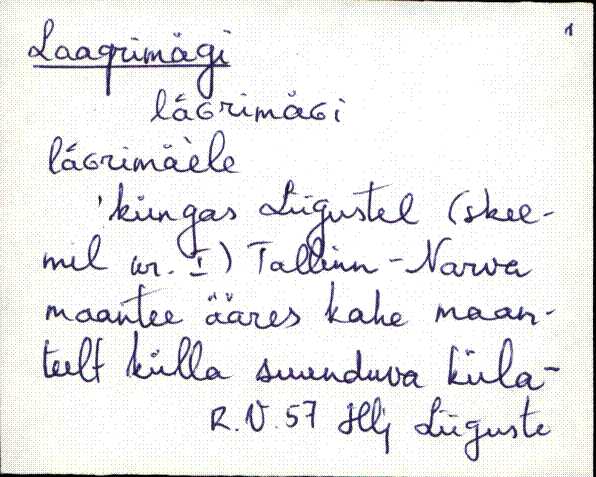 1
Laagrimägi
lāɢrimäɢi
lāɢrimäèle
'küngas Liigustel (skee-
mil nr. I) Tallinn-Narva
maantee ääres kahe maan-
teelt külla suunduva küla-
R.V.57 Hlj Liiguste